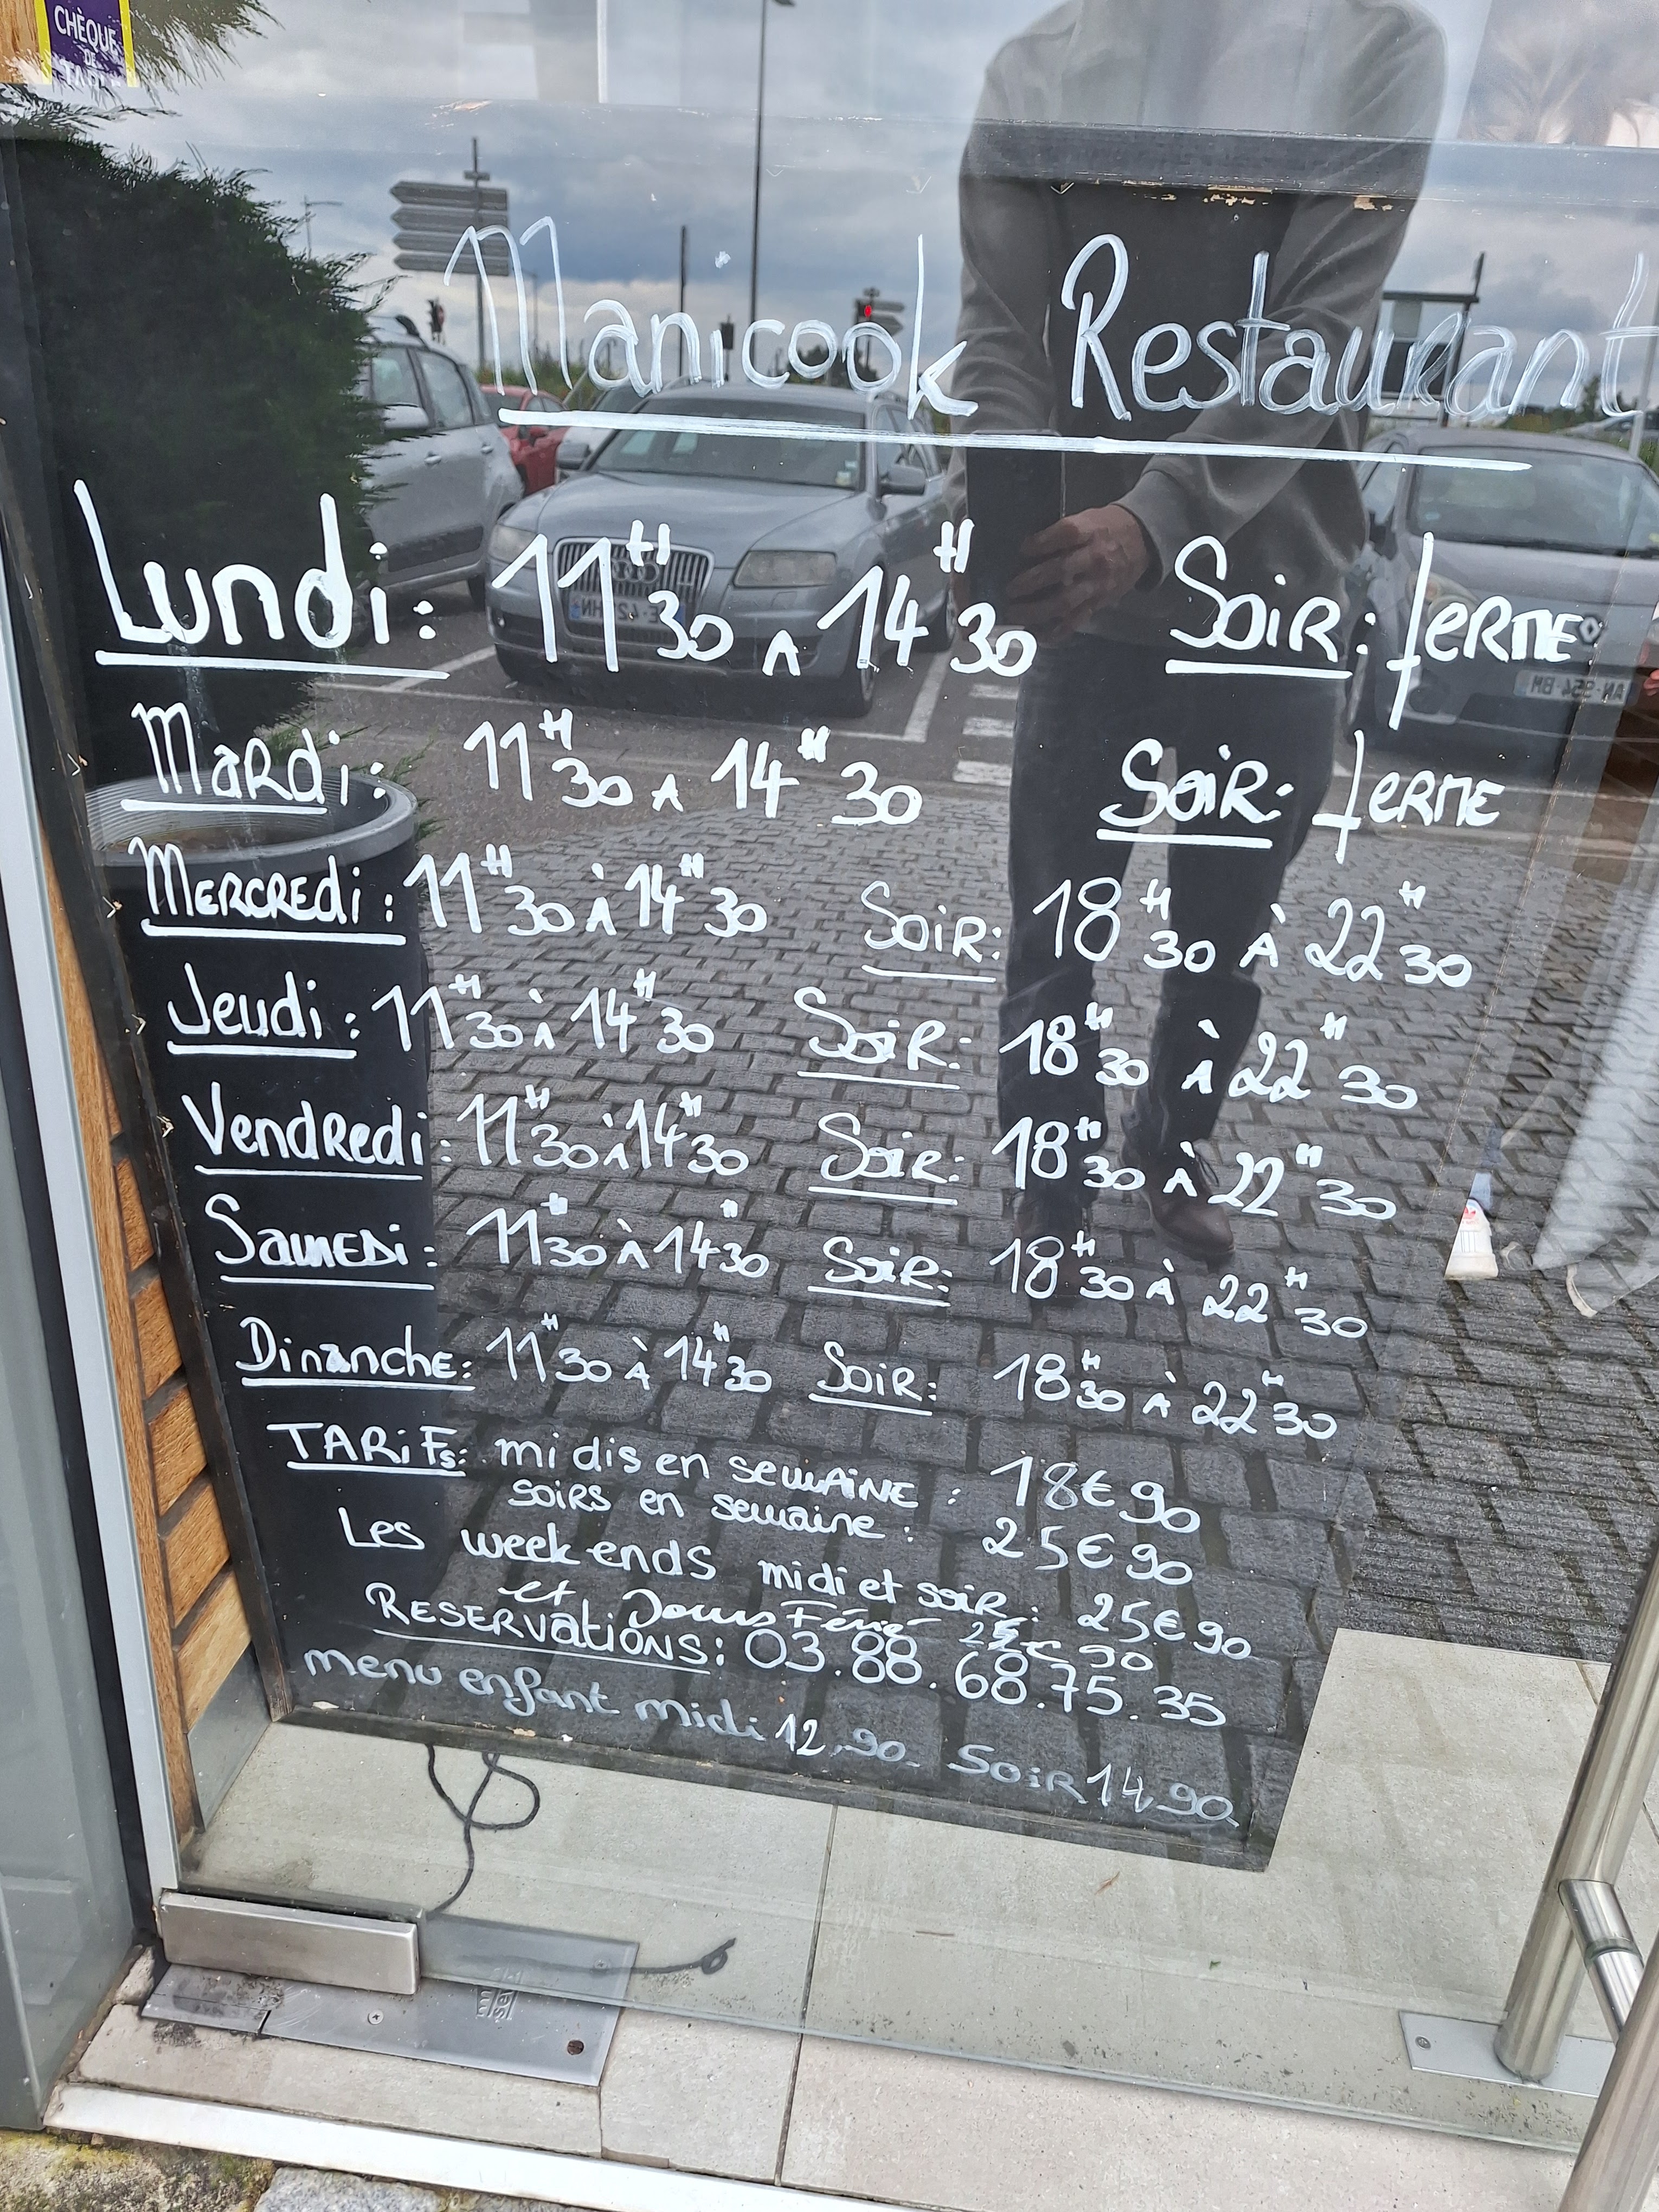 CHÈQUE
DE
Manicook Restaurant
Lundi: 11H30 A 14H30 Soir: fermé
Mardi: 11H30 A 14H30 Soir: fermé
Mercredi: 11H30 à 14H30 Soir: 18H30 à 22H30
Jeudi: 11H30 à 14H30 Soir: 18H30 à 22H30
Vendredi: 11H30 à 14H30 Soir: 18H30 à 22H30
Samedi: 11H30 à 14H30 Soir: 18H30 à 22H30
Dimanche: 11H30 à 14H30 Soir: 18H30 à 22H30
TARiFs: midis en semaine: 18€90
soirs en semaine: 25€90
Les weekends midi et soir: 25€90
et Jours Férié
Reservations: 03.88.68.75.35
menu enfant midi 12,90 - Soir 14,90